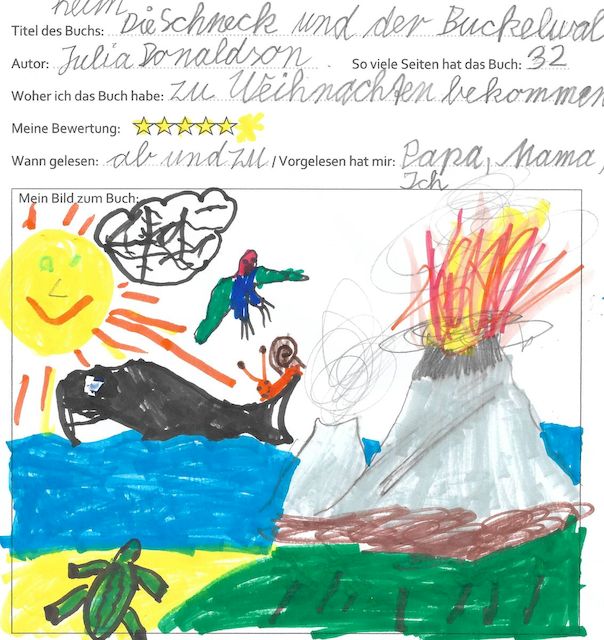 heim
Titel des Buchs: Die Schneck und der Buckelwal
Autor: Julia Donaldson. So viele Seiten hat das Buch: 32
Woher ich das Buch habe: zu Weihnachten bekommen
Meine Bewertung:
Wann gelesen: ab und zu / Vorgelesen hat mir: Papa, Mama,
Ich
Mein Bild zum Buch: